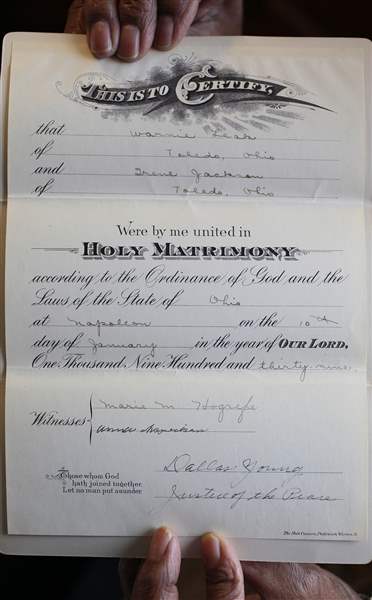 THIS IS TO CERTIFY,
that Warnie Leak
of Toledo, Ohio
and Irene Jackson
of Toledo, Ohio
Were by me united in
HOLY MATRIMONY
according to the Ordinance of God and the
Laws of the State of Ohio
at Napoleon on the 10th
day of January in the year of OUR LORD,
One Thousand Nine Hundred and thirty nine.
Marie M. Hogrefe
Witnesses
Anna
Dallas Young
Justice of the Peace
Those whom God
hath joined together
Let no man put asunder.